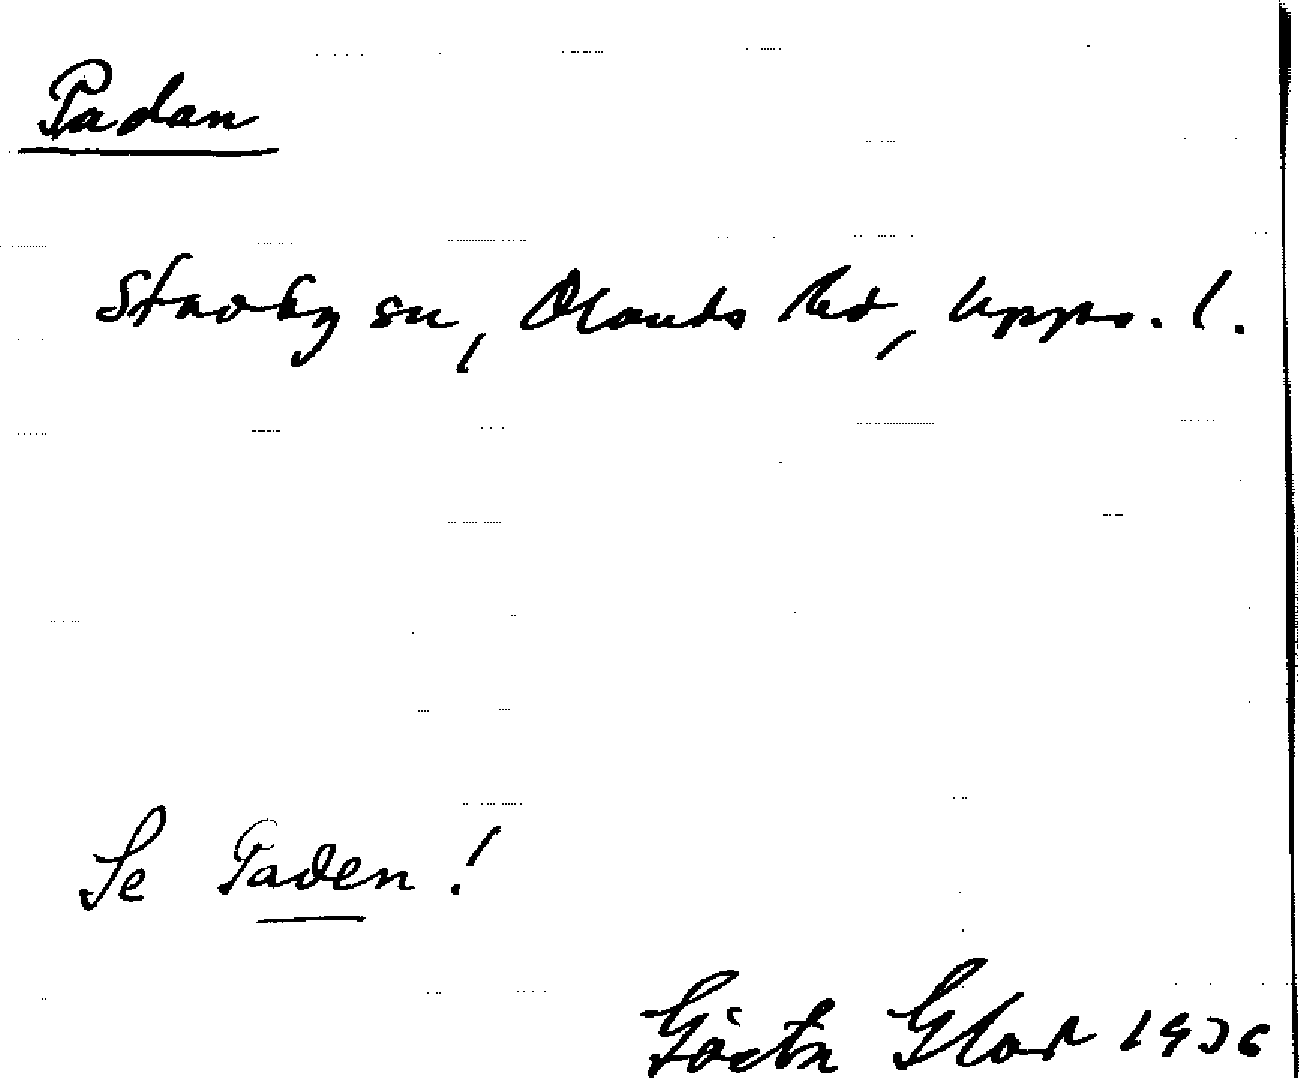 Padan
Stavby sn, Olands hd, Upps. l.
Se Paden!
Gösta Glad 1936